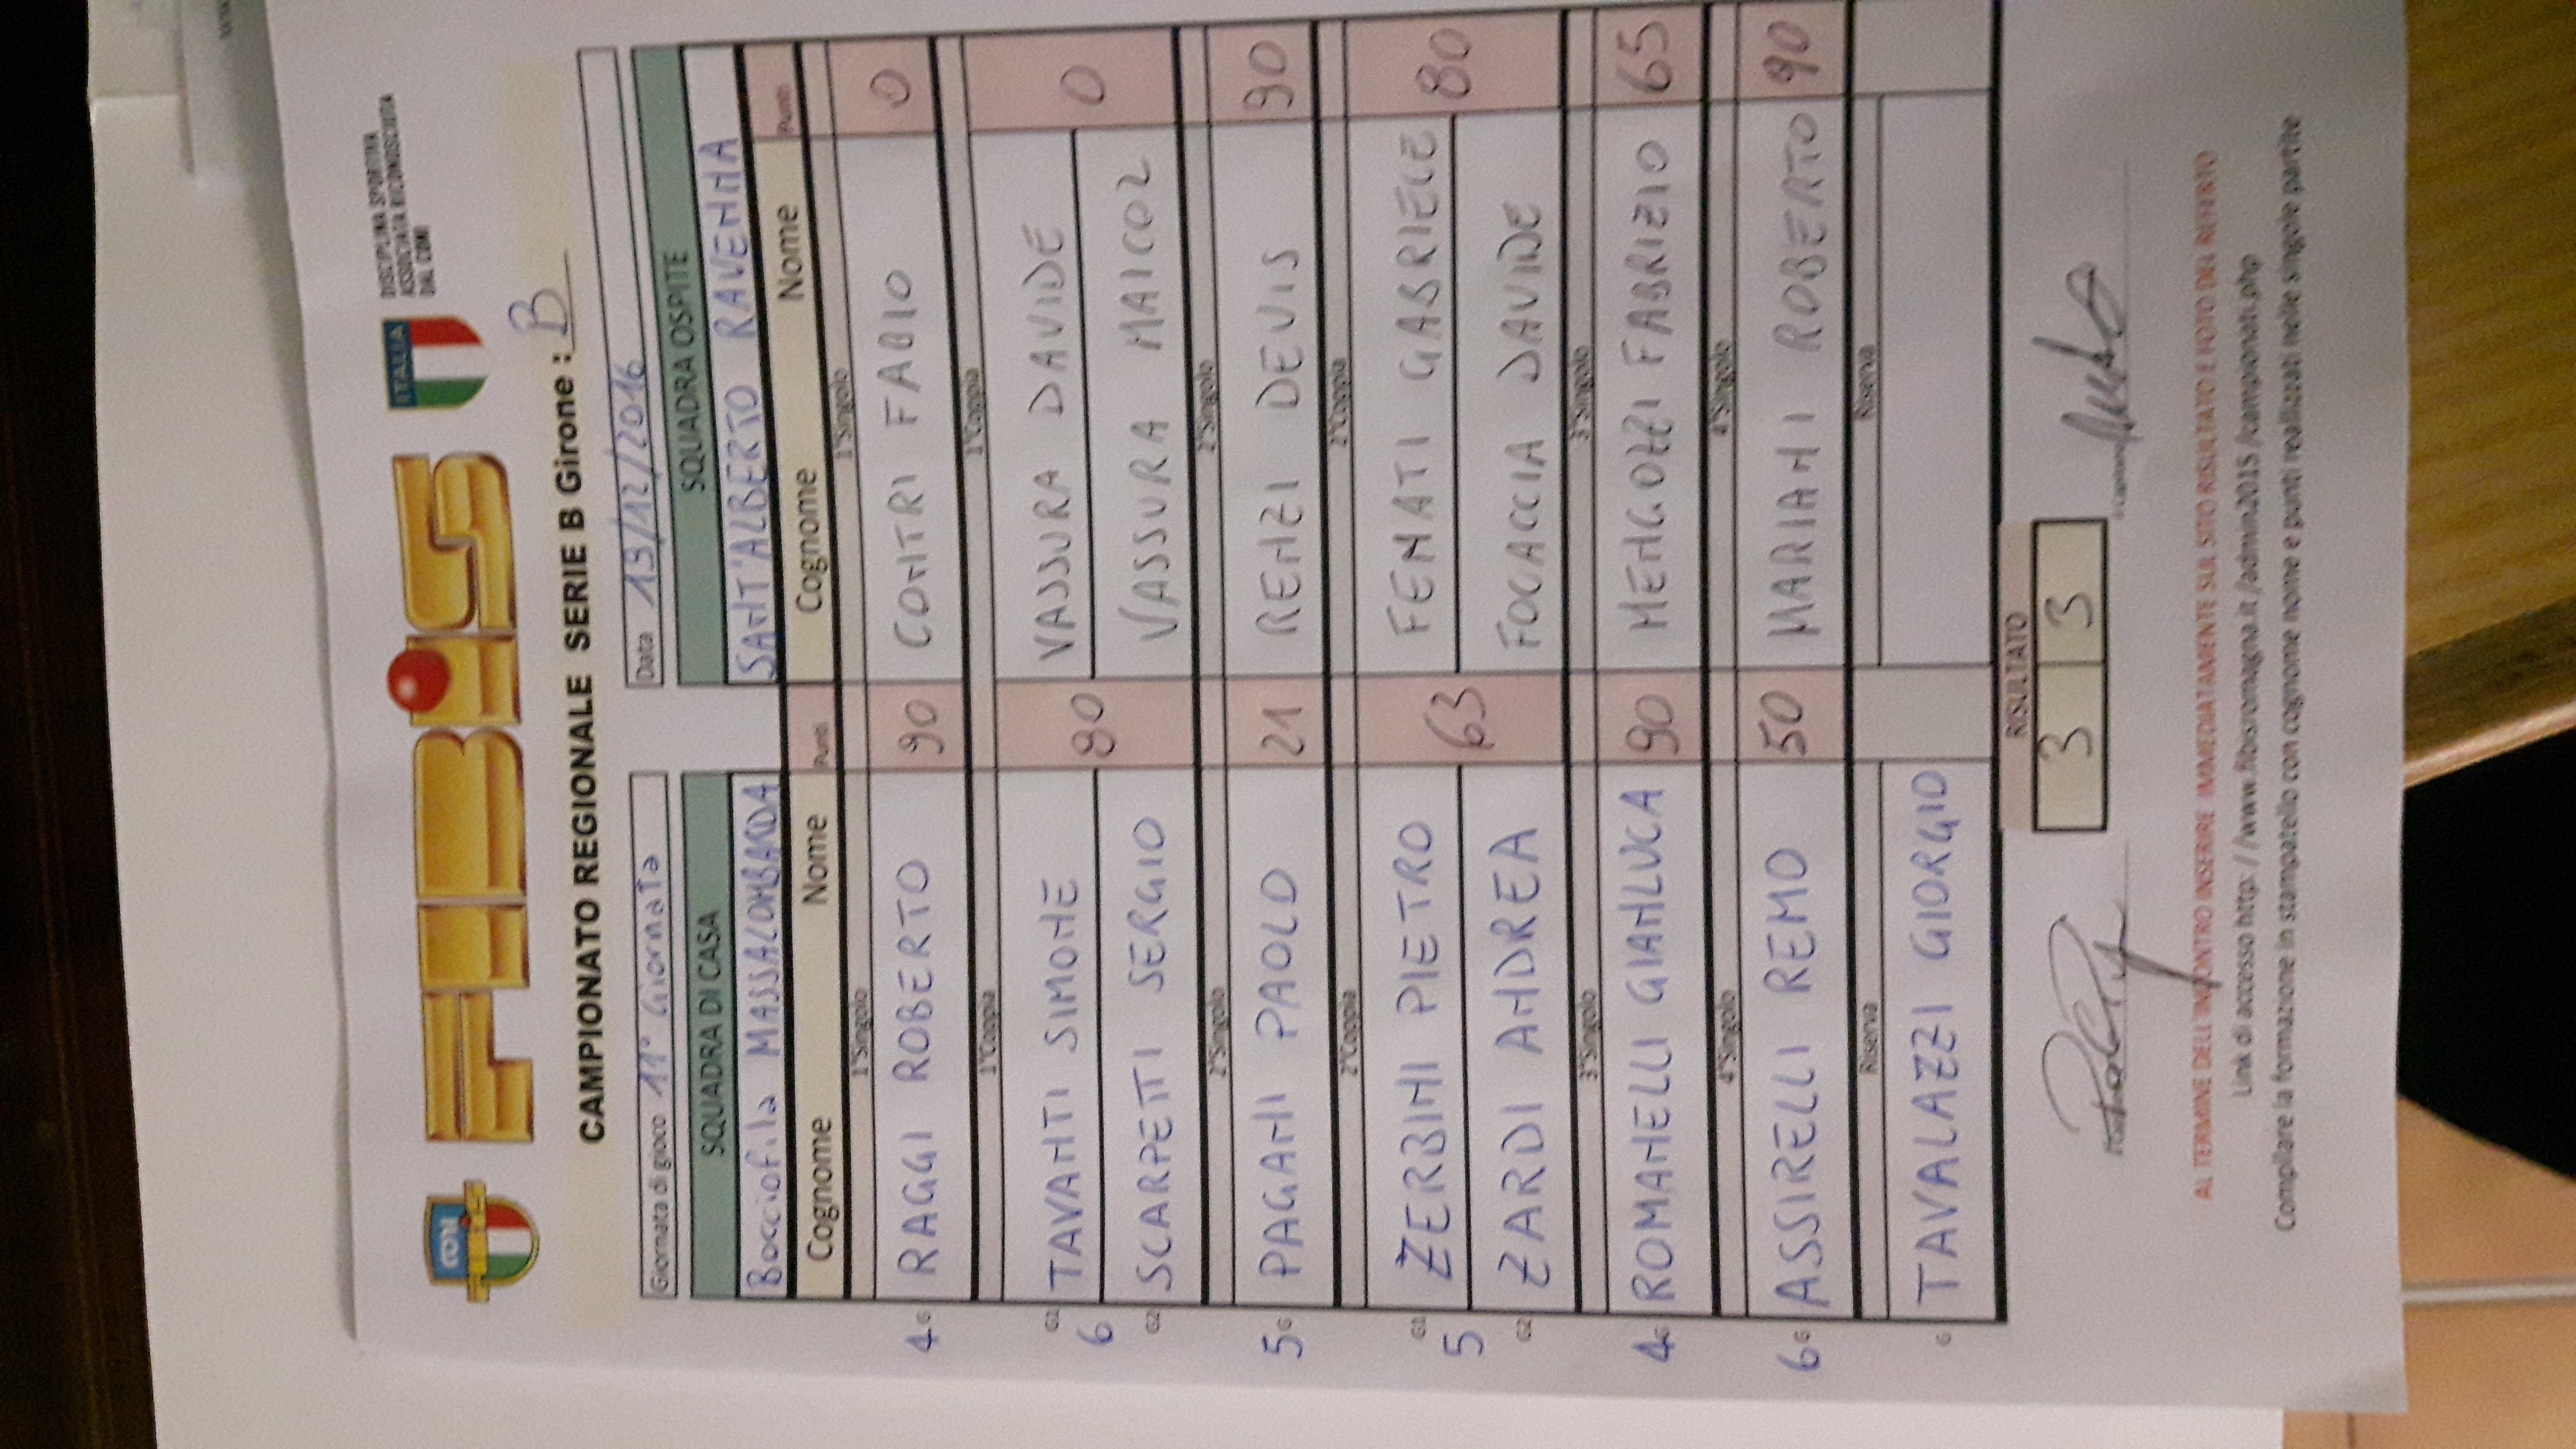 CONI
FIBIS
FIBIS
ITALIA
DISCIPLINA SPORTIVA
ASSOCIATA RICONOSCIUTA
DAL CONI
CAMPIONATO REGIONALE SERIE B Girone : B
Giornata di gioco 11° Giornata Data 13/12/2016
SQUADRA DI CASA SQUADRA OSPITE
Bocciofila MASSALOMBARDA SANT'ALBERTO RAVENNA
Cognome Nome Punti Cognome Nome Punti
1°Singolo 1°Singolo
4 G RAGGI ROBERTO 90 CONTRI FABIO 0
1°Coppia 1°Coppia
G1 TAVANTI SIMONE VASSURA DAVIDE
6 80 0
G2 SCARPETTI SERGIO VASSURA MAICOL
2°Singolo 2°Singolo
5 G PAGANI PAOLO 21 RENZI DEVIS 90
2°Coppia 2°Coppia
G1 ZERBINI PIETRO FENATI GABRIELE
5 63 80
G2 ZARDI ANDREA FOCACCIA DAVIDE
3°Singolo 3°Singolo
4 G ROMANELLI GIANLUCA 90 MENGOZZI FABRIZIO 65
4°Singolo 4°Singolo
6 G ASSIRELLI REMO 50 MARIANI ROBERTO 90
Riserva Riserva
G TAVALAZZI GIORGIO
RISULTATO
3 3
AL TERMINE DELL'INCONTRO INSERIRE IMMEDIATAMENTE SUL SITO RISULTATO E FOTO DEL REFERTO
Link di accesso http: / /www.fibisromagna.it /admin2015 /campionati.php
Compilare la formazione in stampatello con cognome nome e punti realizzati nelle singole partite